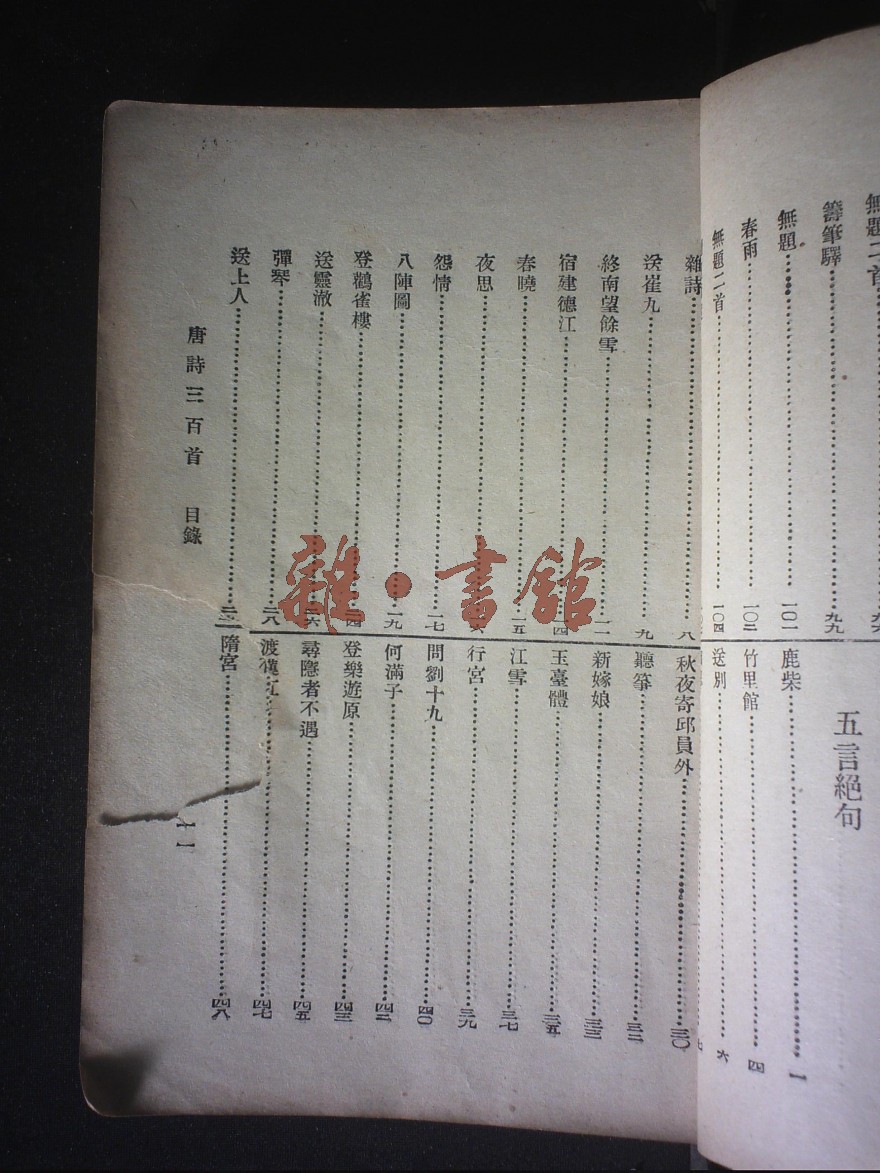 無題二首
籌筆驛⋯⋯九九
無題⋯⋯一〇一
春雨⋯⋯一〇二
無題二首⋯⋯一〇四
五言絕句
鹿柴⋯⋯一
竹里館⋯⋯四
送別⋯⋯六
雜詩⋯⋯八
送崔九⋯⋯九
終南望餘雪⋯⋯一一
宿建德江⋯⋯一四
春曉⋯⋯一五
夜思⋯⋯
怨情⋯⋯一七
八陣圖⋯⋯一九
登鸛雀樓⋯⋯
送靈澈⋯⋯二六
彈琴⋯⋯二八
送上人⋯⋯
秋夜寄邱員外⋯⋯三〇
聽箏⋯⋯三二
新嫁娘⋯⋯三三
玉臺體⋯⋯三五
江雪⋯⋯三七
行宮⋯⋯三九
問劉十九⋯⋯四〇
何滿子⋯⋯四二
登樂遊原⋯⋯四三
尋隱者不遇⋯⋯四五
渡漢江⋯⋯四七
隋宮⋯⋯四八
唐詩三百首 目錄
一一
雜·書館